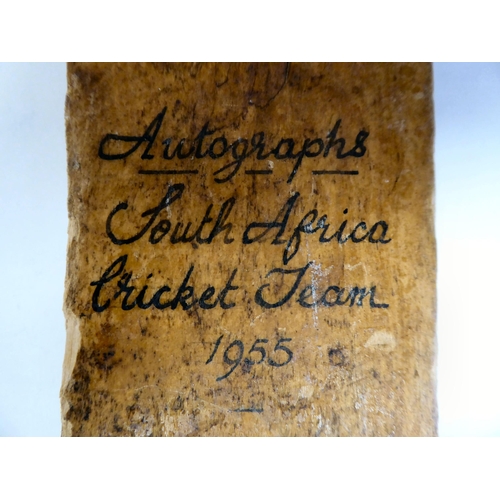 Autographs
South Africa
Cricket Team
1955